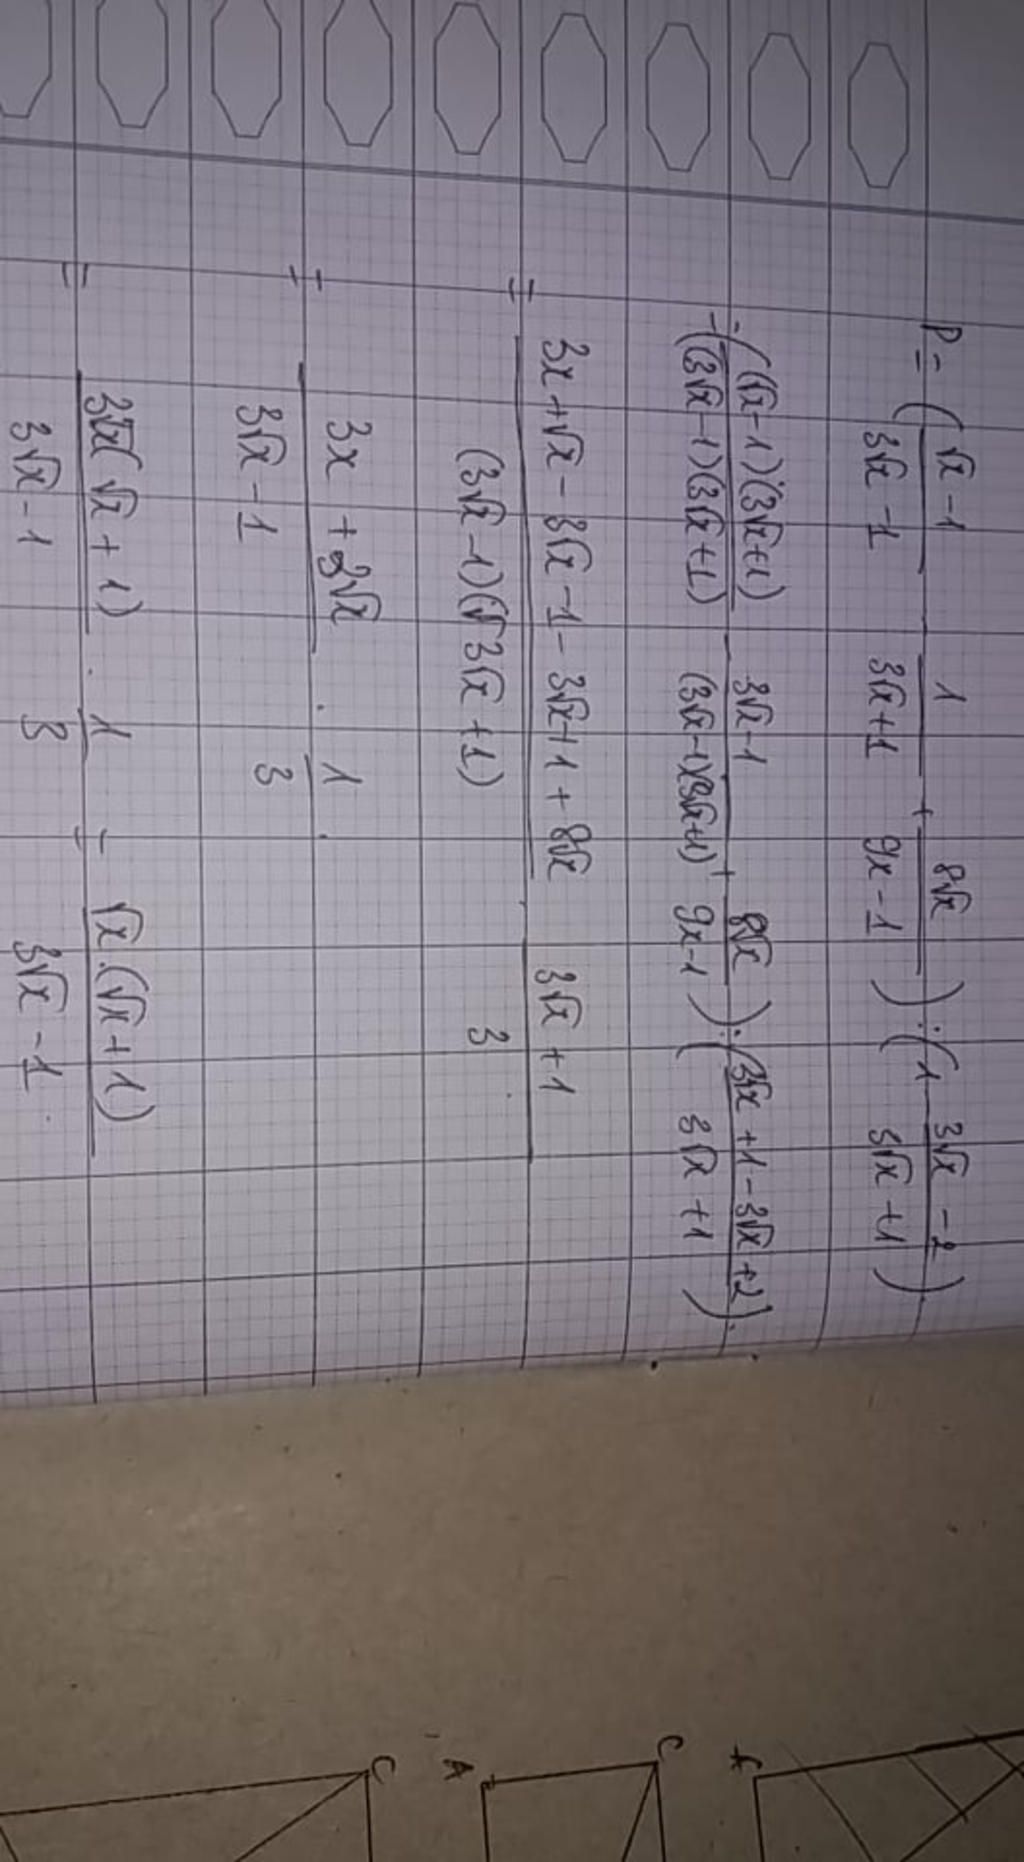 P = ( (√x - 1)/(3√x - 1) - 1/(3√x + 1) + 8√x/(9x - 1) ) : ( 1 - (3√x - 2)/(3√x + 1) )
= ( (√x - 1)(3√x + 1)/((3√x - 1)(3√x + 1)) - (3√x - 1)/((3√x - 1)(3√x + 1)) + 8√x/(9x - 1) ) : ( (3√x + 1 - 3√x + 2)/(3√x + 1) ).
= (3x + √x - 3√x - 1 - 3√x + 1 + 8√x)/((3√x - 1)(√3√x + 1)) . (3√x + 1)/3
= (3x + 3√x)/(3√x - 1) . 1/3 .
= 3√x(√x + 1)/(3√x - 1) . 1/3 = √x.(√x + 1)/(3√x - 1)
A
C
A
C